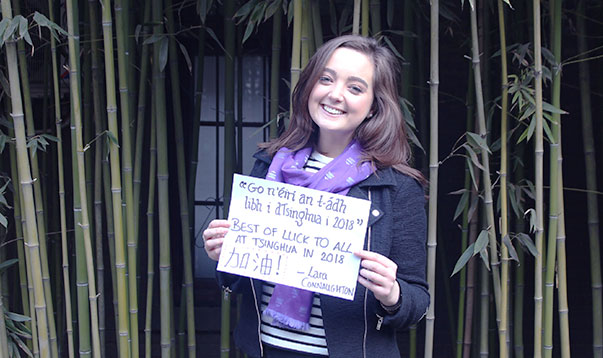 “Go n'éirí an t-ádh
libh i dTsinghua i 2018”
BEST OF LUCK TO ALL
AT TSINGHUA IN 2018
加油! – Lara
CONNAUGHTON